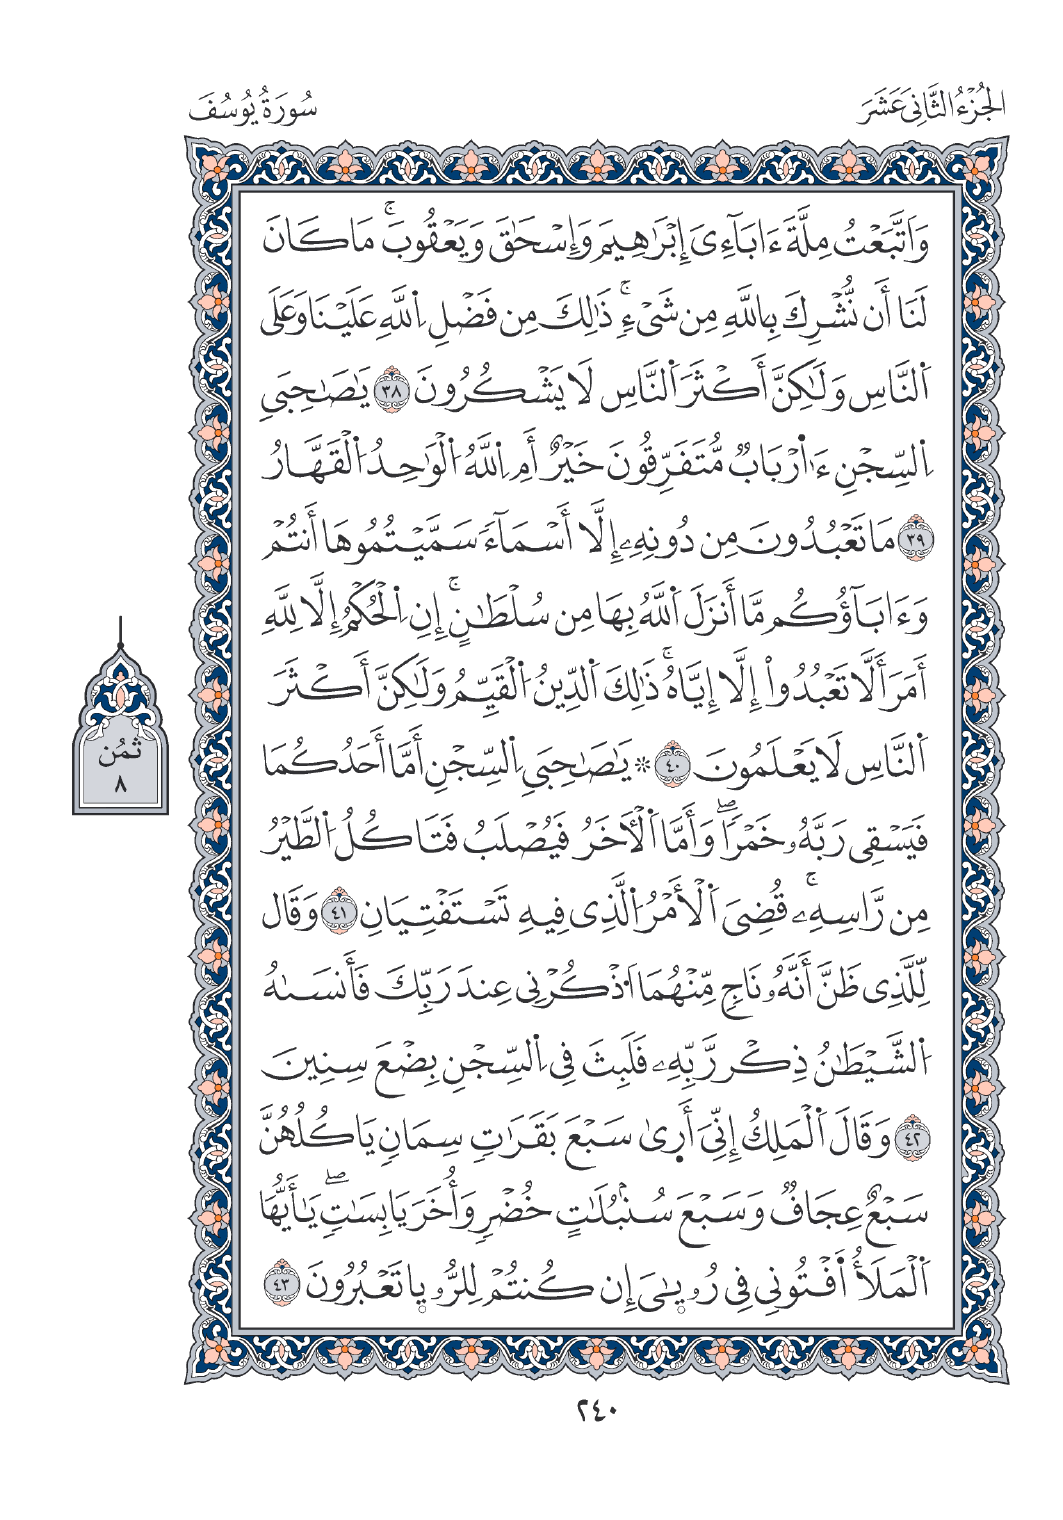 الجُزْءُ الثَّانِيَ عَشَرَ
سُورَةُ يُوسُفَ
وَاتَّبَعْتُ مِلَّةَ ءَابَآءِىَ إِبْرَٰهِيمَ وَإِسْحَٰقَ وَيَعْقُوبَۚ مَا كَانَ
لَنَا أَن نُّشْرِكَ بِاللَّهِ مِن شَىْءٍۚ ذَٰلِكَ مِن فَضْلِ اِ۬للَّهِ عَلَيْنَا وَعَلَى
اَ۬لنَّاسِ وَلَٰكِنَّ أَكْثَرَ اَ۬لنَّاسِ لَا يَشْكُرُونَ ٣٨ يَٰصَٰحِبَيِ
اِ۬لسِّجْنِ ءَا۬رْبَابٌ مُّتَفَرِّقُونَ خَيْرٌ أَمِ اِ۬للَّهُ اُ۬لْوَٰحِدُ اُ۬لْقَهَّارُ
٣٩ مَا تَعْبُدُونَ مِن دُونِهِۦ إِلَّا أَسْمَآءً سَمَّيْتُمُوهَا أَنتُمْ
وَءَابَآؤُكُم مَّا أَنزَلَ اَ۬للَّهُ بِهَا مِن سُلْطَٰنٍۚ إِنِ اِ۬لْحُكْمُ إِلَّا لِلَّهِ
أَمَرَ أَلَّا تَعْبُدُواْ إِلَّا إِيَّاهُۚ ذَٰلِكَ اَ۬لدِّينُ اُ۬لْقَيِّمُ وَلَٰكِنَّ أَكْثَرَ
اَ۬لنَّاسِ لَا يَعْلَمُونَ ٤٠ ۞ يَٰصَٰحِبَيِ اِ۬لسِّجْنِ أَمَّا أَحَدُكُمَا
فَيَسْقِى رَبَّهُۥ خَمْرًاۖ وَأَمَّا اَ۬لْأَخَرُ فَيُصْلَبُ فَتَاكُلُ اُ۬لطَّيْرُ
مِن رَّاسِهِۦۚ قُضِىَ اَ۬لْأَمْرُ اُ۬لَّذِى فِيهِ تَسْتَفْتِيَانِ ٤١ وَقَالَ
لِلَّذِى ظَنَّ أَنَّهُۥ نَاجٍ مِّنْهُمَا اَ۟ذْكُرْنِى عِندَ رَبِّكَ فَأَنسَىٰهُ
اُ۬لشَّيْطَٰنُ ذِكْرَ رَبِّهِۦ فَلَبِثَ فِى اِ۬لسِّجْنِ بِضْعَ سِنِينَ
٤٢ وَقَالَ اَ۬لْمَلِكُ إِنِّىَ أَرٜىٰ سَبْعَ بَقَرَٰتٍ سِمَانٍ يَاكُلُهُنَّ
سَبْعٌ عِجَافٌ وَسَبْعَ سُنۢبُلَٰتٍ خُضْرٍ وَأُخَرَ يَابِسَٰتٍۖ يَٰأَيُّهَا
اَ۬لْمَلَأُ اَ۬فْتُونِى فِى رُوۥيٰٜىَ إِن كُنتُمْ لِلرُّوۥيٜا تَعْبُرُونَ ٤٣
ثُمُن
٨
٢٤٠